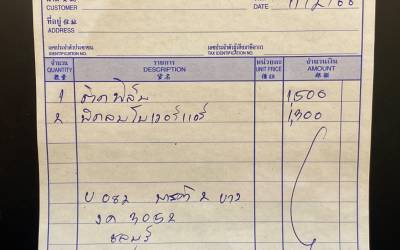 CUSTOMER
DATE
ที่อยู่ 住址
ADDRESS
เลขประจำตัวประชาชน
IDENTIFICATION NO.
เลขประจำตัวผู้เสียภาษีอากร
TAX IDENTIFICATION NO.
จำนวน QUANTITY 數量
รายการ DESCRIPTION 貨名
หน่วยละ UNIT PRICE 價錢
จำนวนเงิน AMOUNT 銀額
1 ติดฟิล์ม 1,500
2 พัดลมโบเวอร์แอร์ 1,300
ป 082 2
3052
ชลบุรี